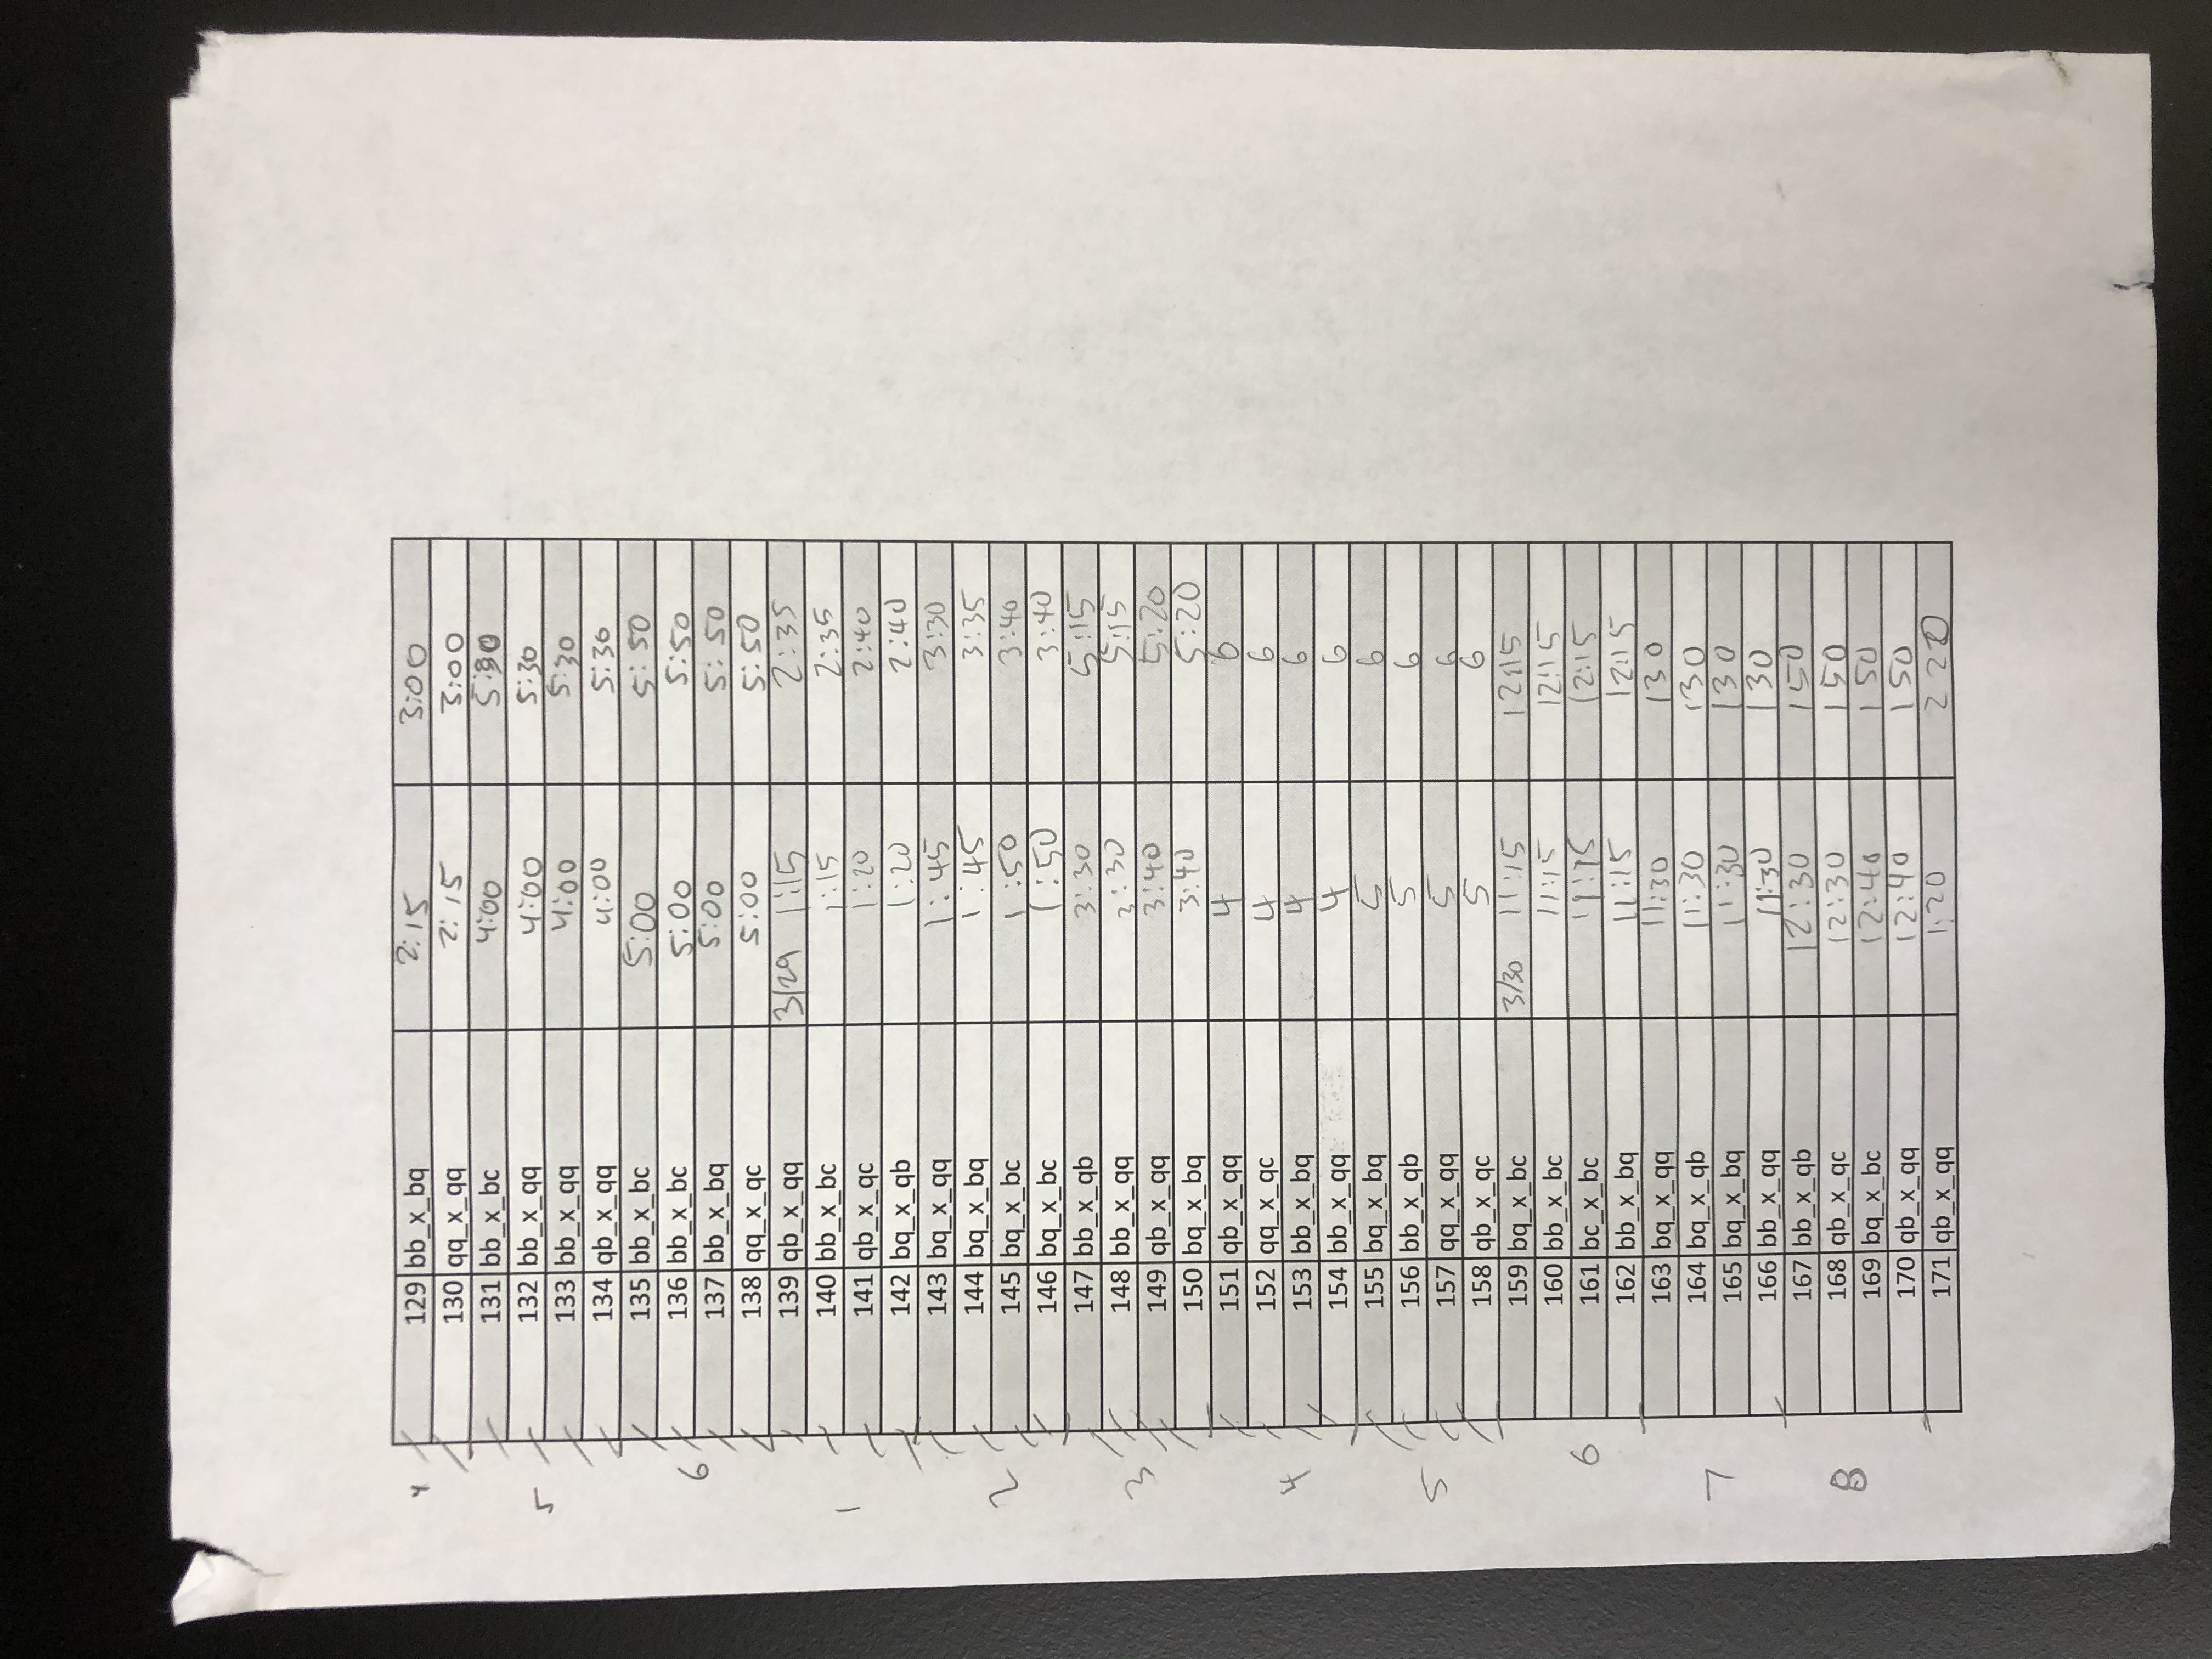 4 129 bb_x_bq 2:15 3:00
130 qq_x_qq 2:15 3:00
131 bb_x_bc 4:00 5:30
5 132 bb_x_qq 4:00 5:30
133 bb_x_qq 4:00 5:30
134 qb_x_qq 4:00 5:30
135 bb_x_bc 5:00 5:50
6 136 bb_x_bc 5:00 5:50
137 bb_x_bq 5:00 5:50
138 qq_x_qc 5:00 5:50
139 qb_x_qq 3/29 1:15 2:35
140 bb_x_bc 1:15 2:35
1 141 qb_x_qc 1:20 2:40
142 bq_x_qb 1:20 2:40
143 bq_x_qq 1:45 3:30
144 bq_x_bq 1:45 3:35
2 145 bq_x_bc 1:50 3:40
146 bq_x_bc 1:50 3:40
147 bb_x_qb 3:30 5:15
3 148 bb_x_qq 3:30 5:15
149 qb_x_qq 3:40 5:20
150 bq_x_bq 3:40 5:20
151 qb_x_qq 4 6
152 qq_x_qc 4 6
4 153 bb_x_bq 4 6
154 bb_x_qq 4 6
155 bq_x_bq 5 6
156 bb_x_qb 5 6
5 157 qq_x_qq 5 6
158 qb_x_qc 5 6
159 bq_x_bc 3/30 11:15 12:15
160 bb_x_bc 11:15 12:15
6 161 bc_x_bc 11:15 12:15
162 bb_x_bq 11:15 12:15
163 bq_x_qq 11:30 130
164 bq_x_qb 11:30 130
7 165 bq_x_bq 11:30 130
166 bb_x_qq 11:30 130
167 bb_x_qb 12:30 150
8 168 qb_x_qc 12:30 150
169 bq_x_bc 12:40 150
170 qb_x_qq 12:40 150
171 qb_x_qq 1:20 220